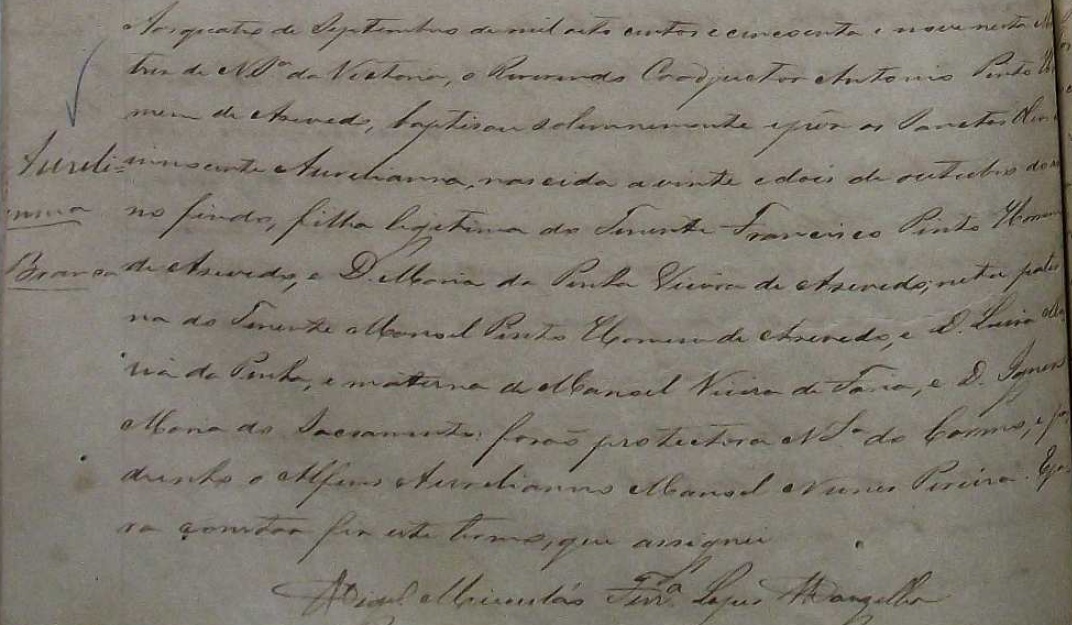 Aos quatro de Septembro de mil oito centos e cincoenta e nove nesta Ma
triz de N Sª da Victoria, o Reverendo Coadjuctor Antonio Pinto Ho
mem de Azevedo, baptisou solemnemente e pôz os Sanctos
Aureli= innocente Aurelianna, nascida a vinte e dois de outubro do an
anna no findo, filha legitima do Tenente Francisco Pinto Homem
Branca de Azevedo, e D. Maria da Penha Vieira de Azevedo; neta pater
na do Tenente Manoel Pinto Homem de Azevedo, e D. Luisa Ma
ria da Penha, e materna de Manoel Vieira de Faria, e D. Ignes
Maria do Sacramento: forão protectora N Sª do Carmo, e pa
drinho o Alferes Aurelianno Manoel Nunes Pereira. E pa
ra constar fiz este termo, que assignei
Mieceslás Ferrª Lopes Wanzeller